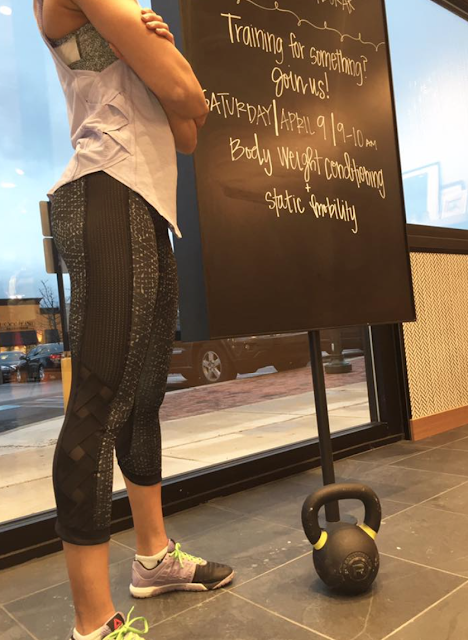 Training for something?
Join us!
SATURDAY | APRIL 9 | 9-10 AM
Body Weight Conditioning
+
Static Mobility